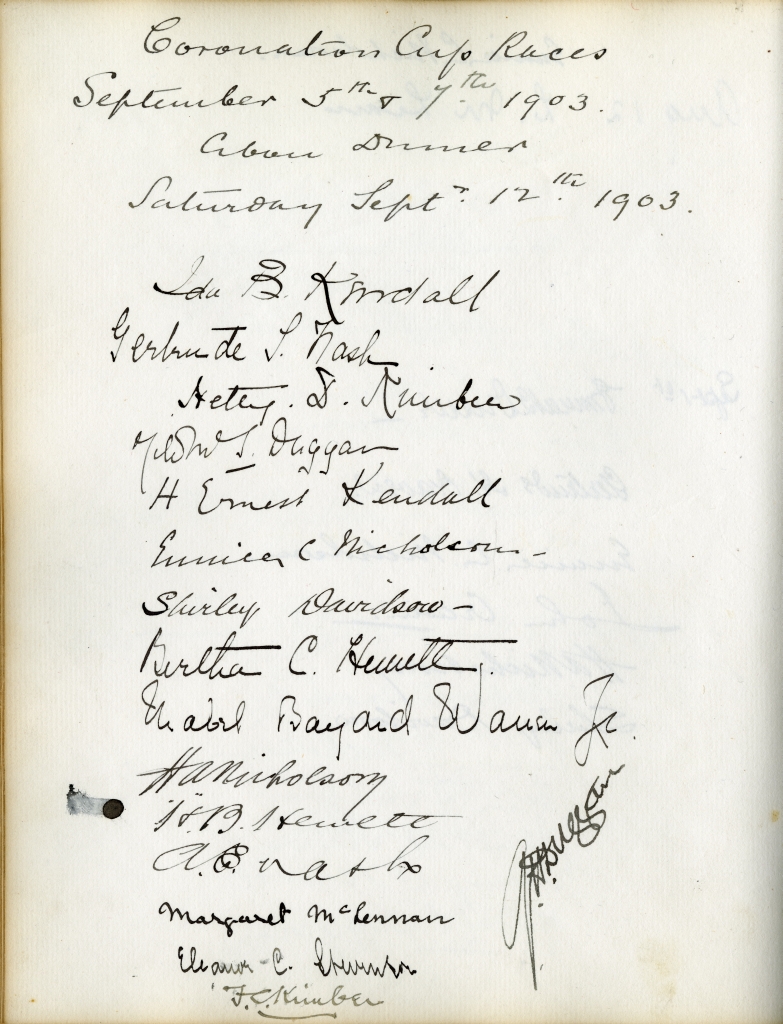 Coronation Cup Races
September 5th & 7th 1903.
Dinner
Saturday Septr. 12th 1903.
Ida B. Kendall
Gertrude S. Nash
D. Kimber
Mildred S. Duggan
H Ernest Kendall
Eunice C Nicholson -
Shirley Davidson -
Bertha C. Hewett.
Mabel Bayard Warren Jr.
HA Nicholson
H.B. Hewett
A.E. Nash
G.H. Duggan
Margaret McLennan
Eleanor C. Stevenson
F.C. Kimber